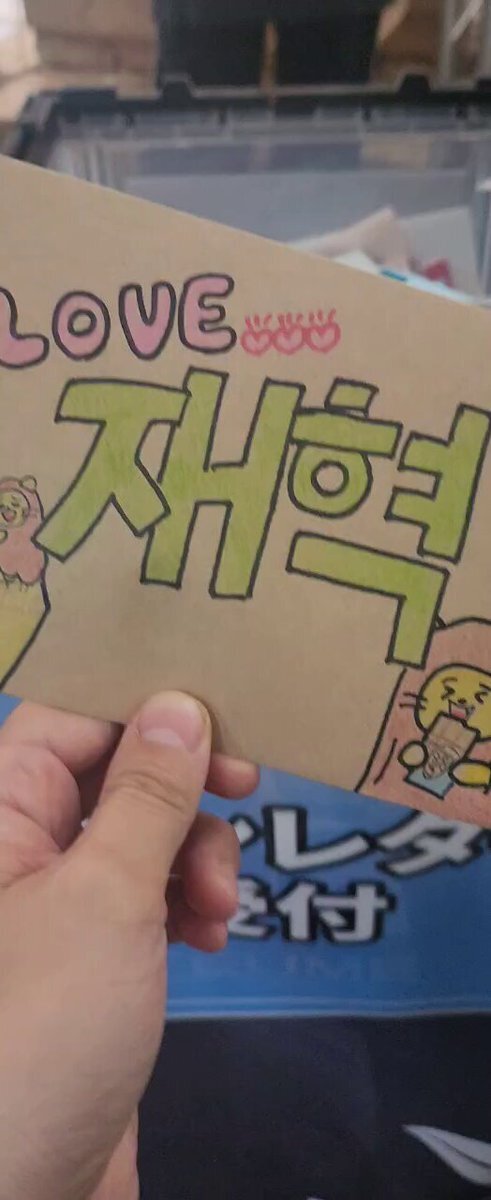 LOVE
재혁
ンレタ
受付